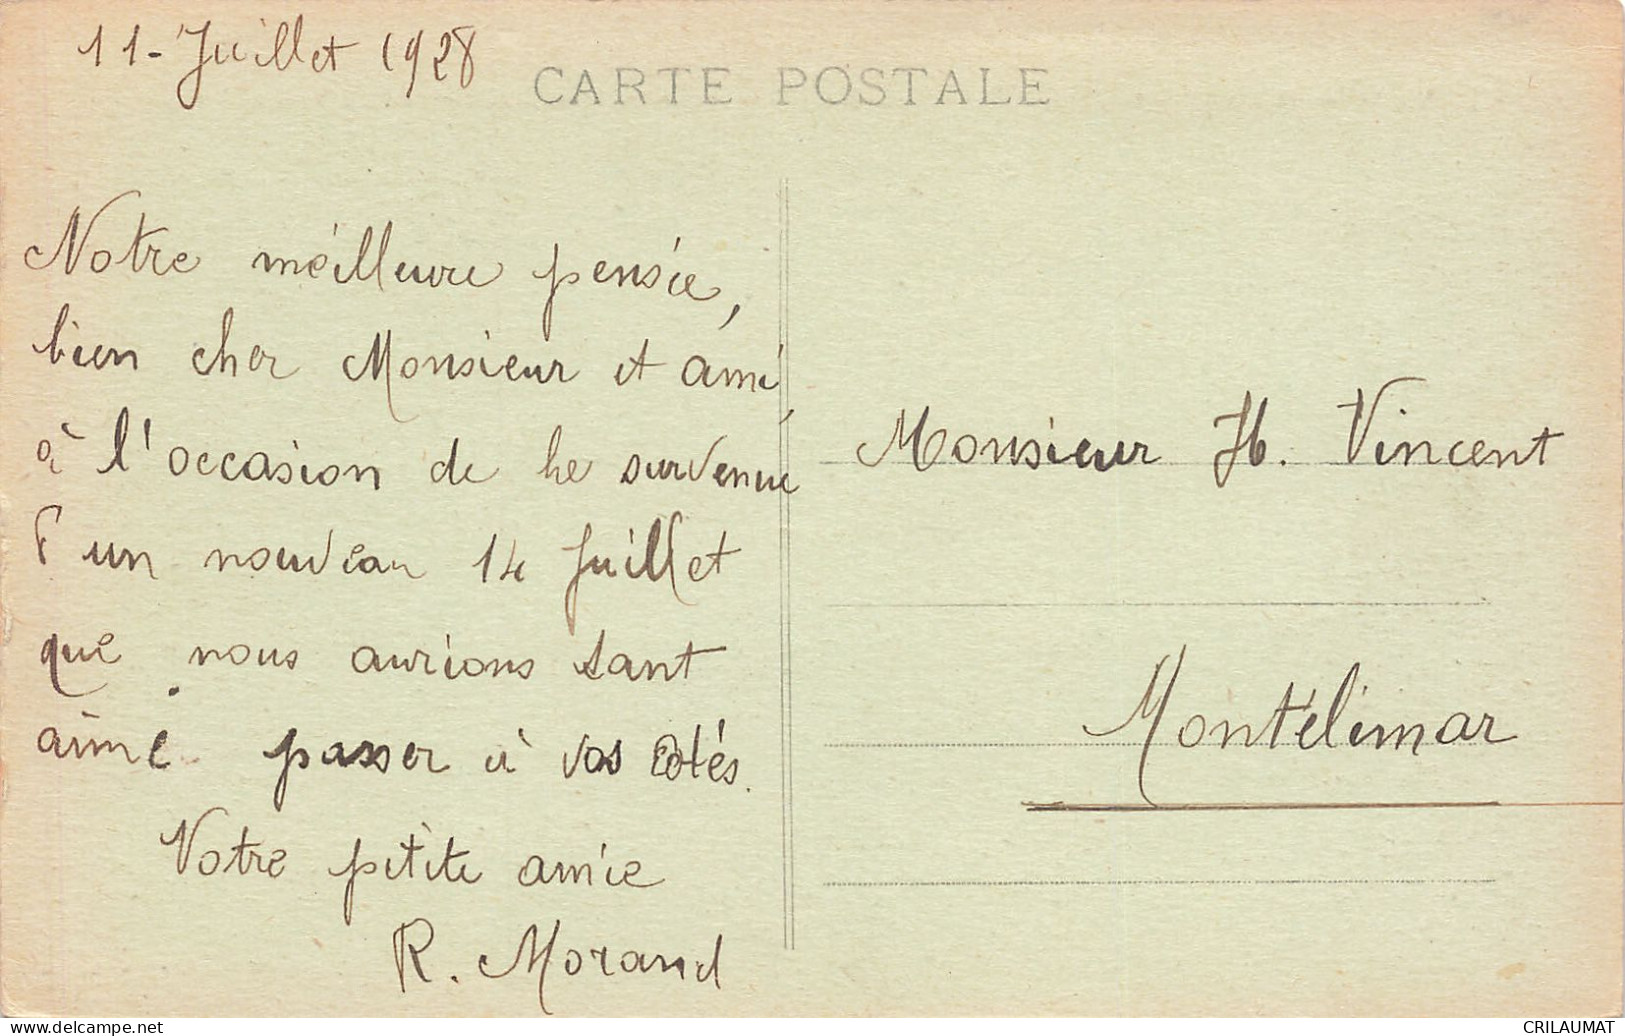 11 - Juillet 1928
CARTE POSTALE
Notre meilleure pensée,
bien cher Monsieur et ami,
à l'occasion de survenue
d'un nouveau 14 Juillet
que nous aurions tant
aimé passer à vos côtés.
Votre petite amie
R. Morand
Monsieur H. Vincent
Montélimar
www.delcampe.net
CRILAUMAT